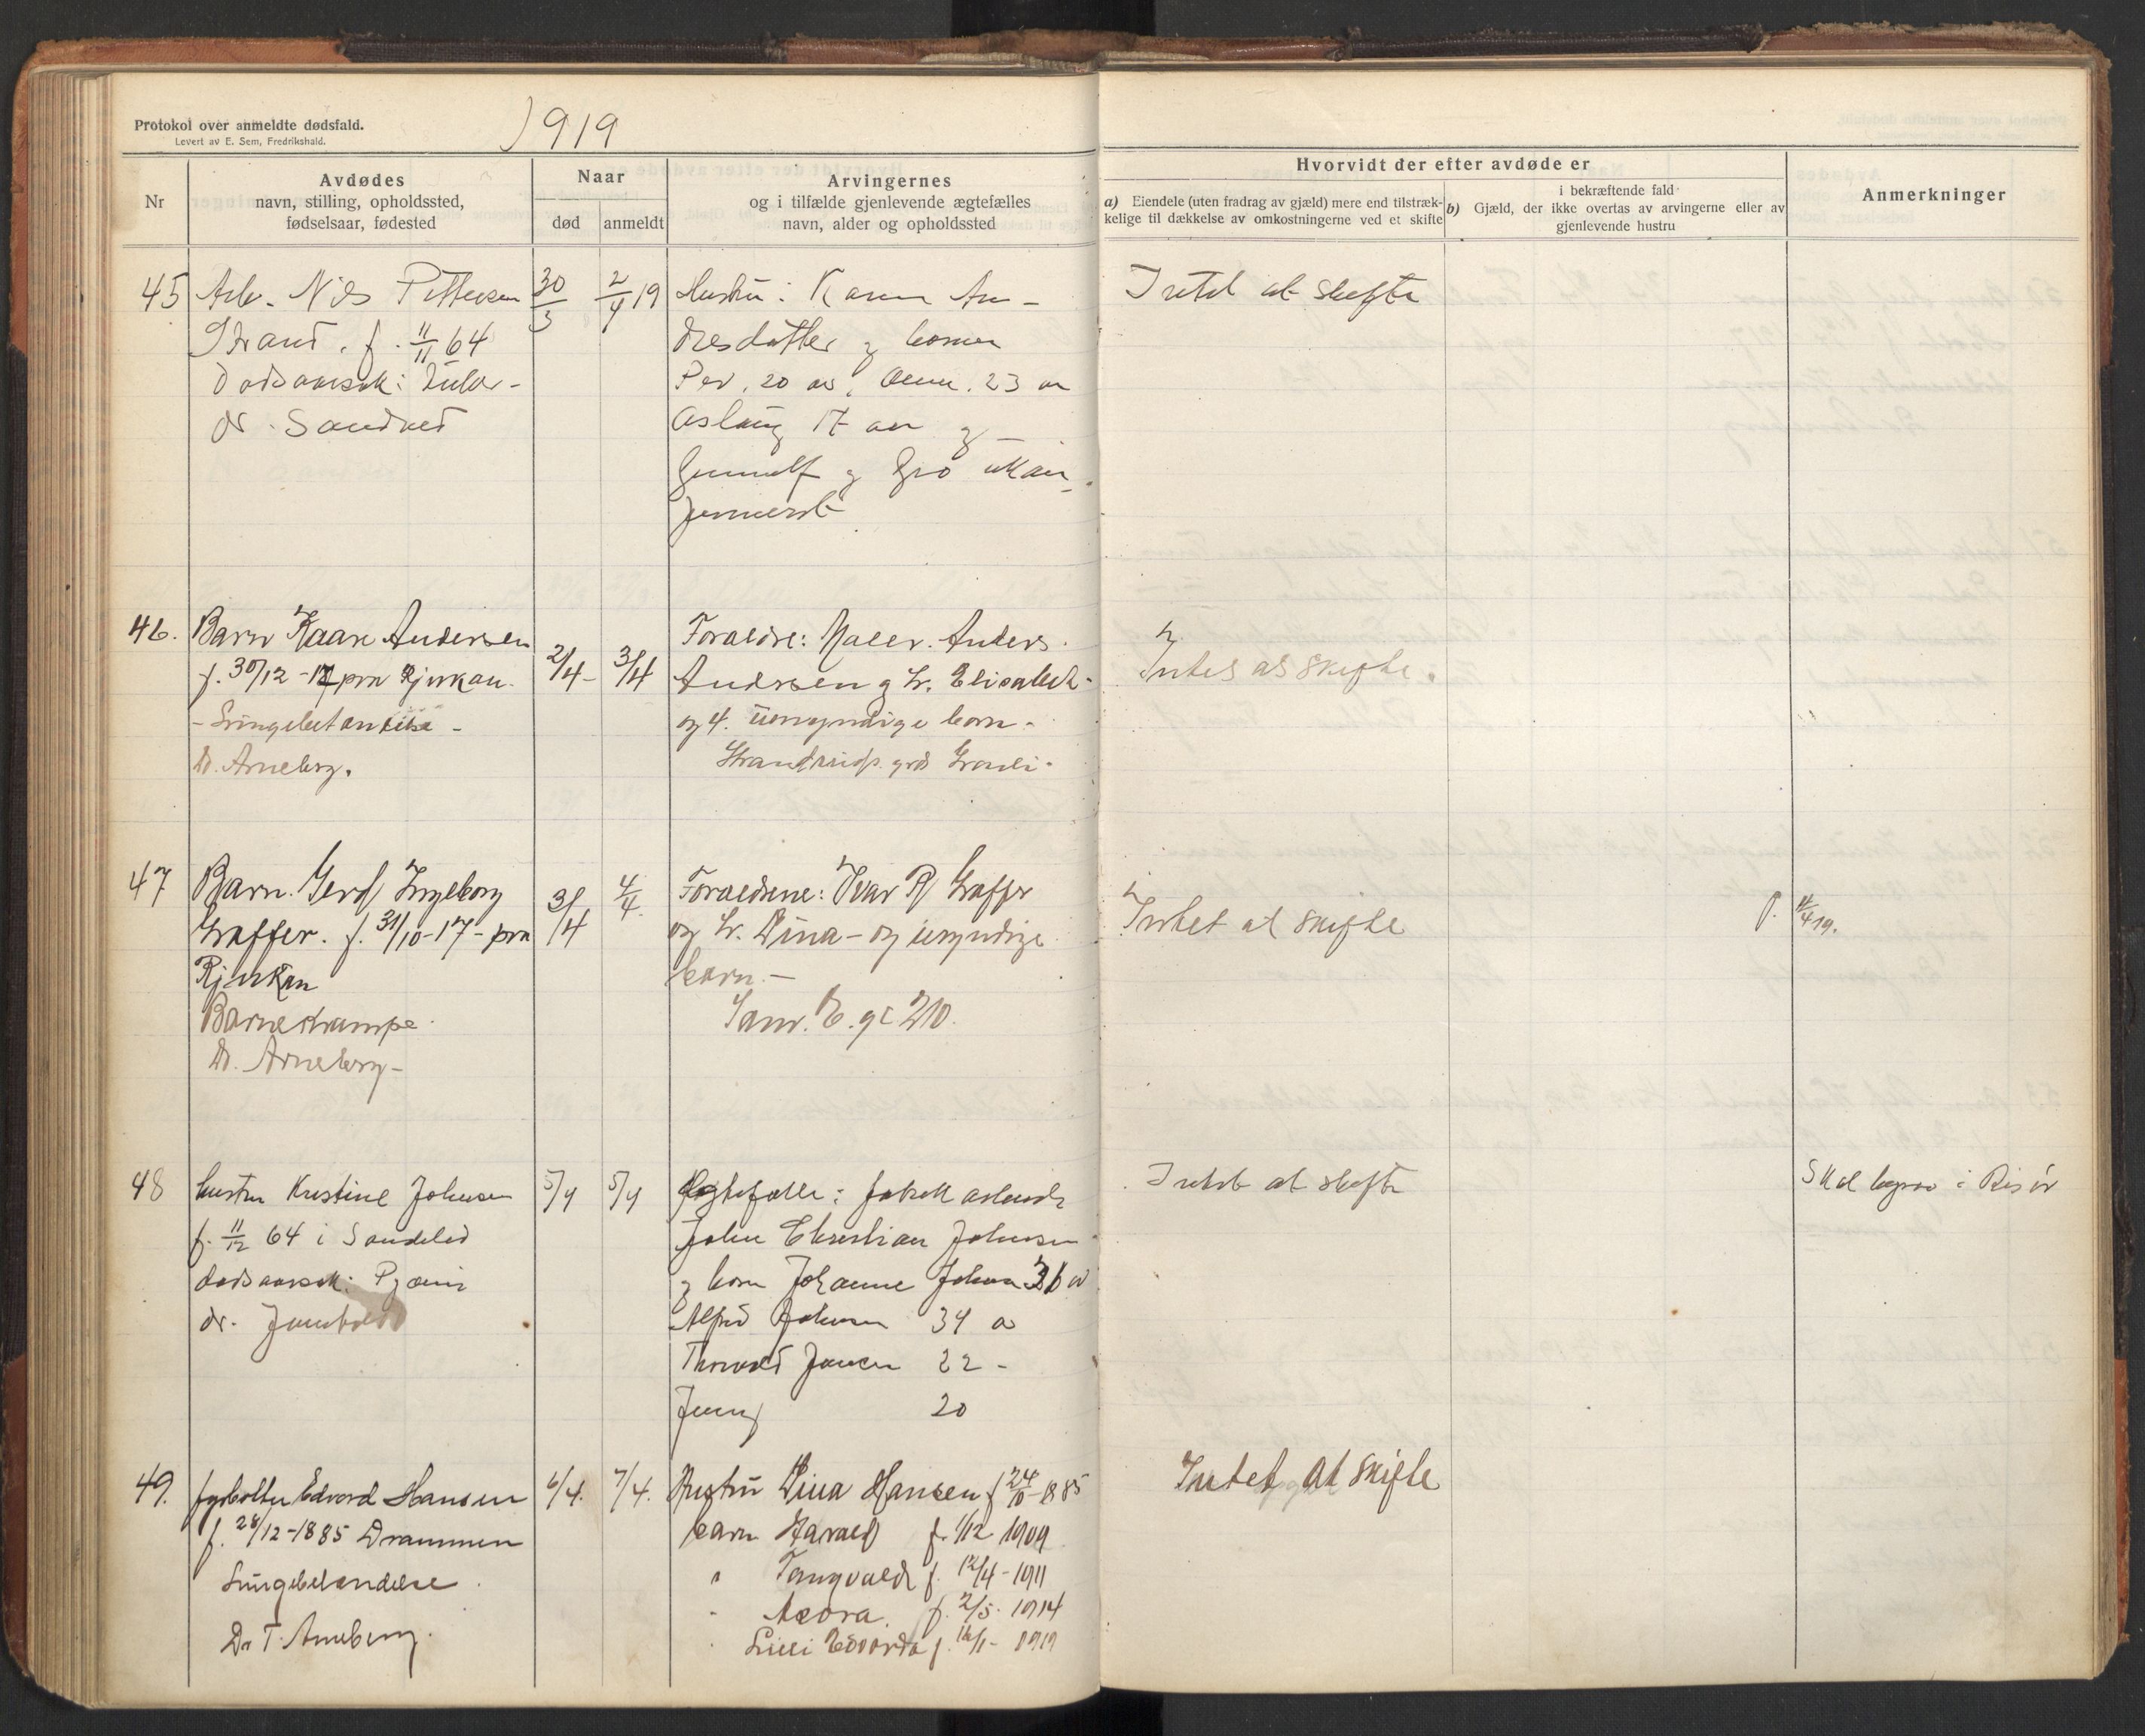 Protokol over anmeldte dødsfald.
Levert av E. Sem, Fredrikshald.
1919
Nr
Avdødes
navn, stilling, opholdssted,
fødselsaar, fødested
Naar
død
anmeldt
Arvingernes
og i tilfælde gjenlevende ægtefælles
navn, alder og opholdssted
Hvorvidt der efter avdøde er
a) Eiendele (uten fradrag av gjæld) mere end tilstræk-
kelige til dækkelse av omkostningerne ved et skifte
i bekræftende fald
b) Gjæld, der ikke overtas av arvingerne eller av
gjenlevende hustru
Anmerkninger
45
Arb. Nils Pettersen
Strand. f. 11/11 64
dødsaarsak: Tuber-
dr. Sandved
30/3
2/4 19
Hustru: Karen An-
dresdatter og barnen
Per, 20 aar, 23 aar
Aslaug 17 aar og
Gunnulf og Gro ukon-
firmerte
Intet at skifte
46.
Barn Kaare Andersen
f. 30/12-17 paa Rjukan.
- Lungebetændelse -
Dr. Arneberg.
2/4-
3/4
Foraldre: Maler. Anders.
Andersen og h. Elisabeth.
og 4. uemyndige barn.
Intet at skifte.
47
Barn. Gerd Ingeborg
Graffer. f. 31/10-17- paa
Rjukan
Barnekrampe.
Dr. Arneberg-
3/4
4/4
Foraeldrene: Ivar P. Graffer
og h. Dina - og umyndige
barn.-
210.
Intet at skifte
11/4 19.
48
hustru Kristine Johnsen
f. 11/12 64 i Søndeled
dødsaarsak: Pyæmi
dr.
5/4
5/4
Ægtefælle: fabrik arbeider
John Christian Johnsen
og barn Johanne Johnsen 36 aar
Alfred Johnsen 34 a
Thorvald Jonsen 22 -
Jenny 20
Intet at skifte
Skal begrav i Risør
49.
fyrbøter Edvard Hansen
f. 28/12-1885 Drammen
Lungebetændelse.
Dr T. Arneberg.
6/4.
7/4.
Hustru Dina Hansen f 24/10-1885
barn Harald f. 1/12 1909
" Tangvald f. 12/4-1911
" f. 2/5. 1914
" Lilli Edvarda f. 16/1- 1919
Intet at skifte